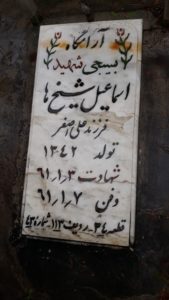 آرامگاه
بسیجی شهید
اسماعیل شیخ ها
فرزند علی اصغر
تولد ۱۳۴۲
شهادت ۶۱،۱،۳
دفن ۶۱،۱،۷
قطعه ردیف ۱۱۳ شماره